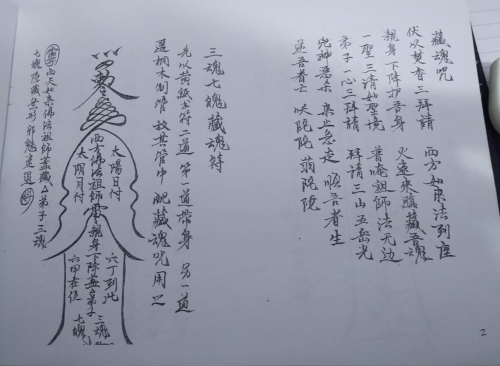 藏魂咒
伏以焚香三拜請 西方如來法到座
親身下降护吾身 火速來臨藏吾魂
一聖三清如聖境 普唵祖師法无边
弟子一心三拜請 拜請三山五岳光
兇神惡杀 杀止急走 順吾者生
逆吾者亡
三魂七魄藏魂符
先以黄紙书符二道 第一道带身 另一道
放其管中 藏魂咒用之
太陽日付
太阴月付
西方佛法祖師
親身下降蓋弟子
三魂
七魄
六丁到此
六甲在位
西天如來佛法祖師蓋藏 弟子三魂
七魄隐藏無形